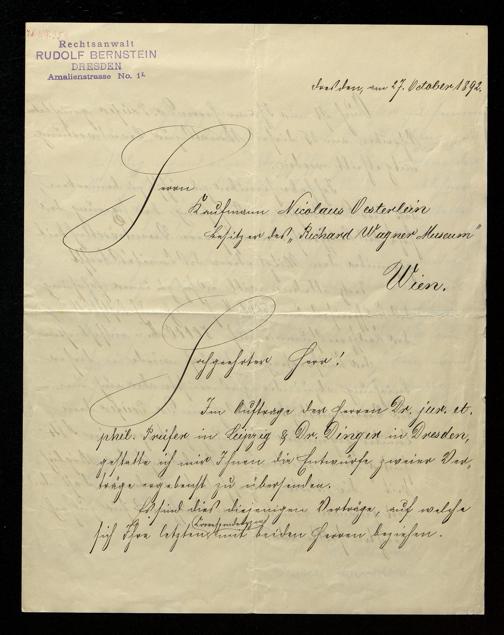 Rechtsanwalt
RUDOLF BERNSTEIN
DRESDEN
Amalienstrasse No. 1
Dresden, am 27. October 1892.
Herrn
Kaufmann Nicolaus Oesterlein
Besitzer des „Richard Wagner Museum"
Wien.
Hochgeehrter Herr!
Im Auftrage der Herren Dr. jur. et.
phil. Prüfer in Leipzig & Dr. Dinger in Dresden,
gestatte ich mir Ihnen die Entwürfe zweier Ver-
träge ergebenst zu übersenden.
Es sind dies diejenigen Verträge, auf welche
sich Ihre letzten Correspondenzen mit beiden Herren beziehen.